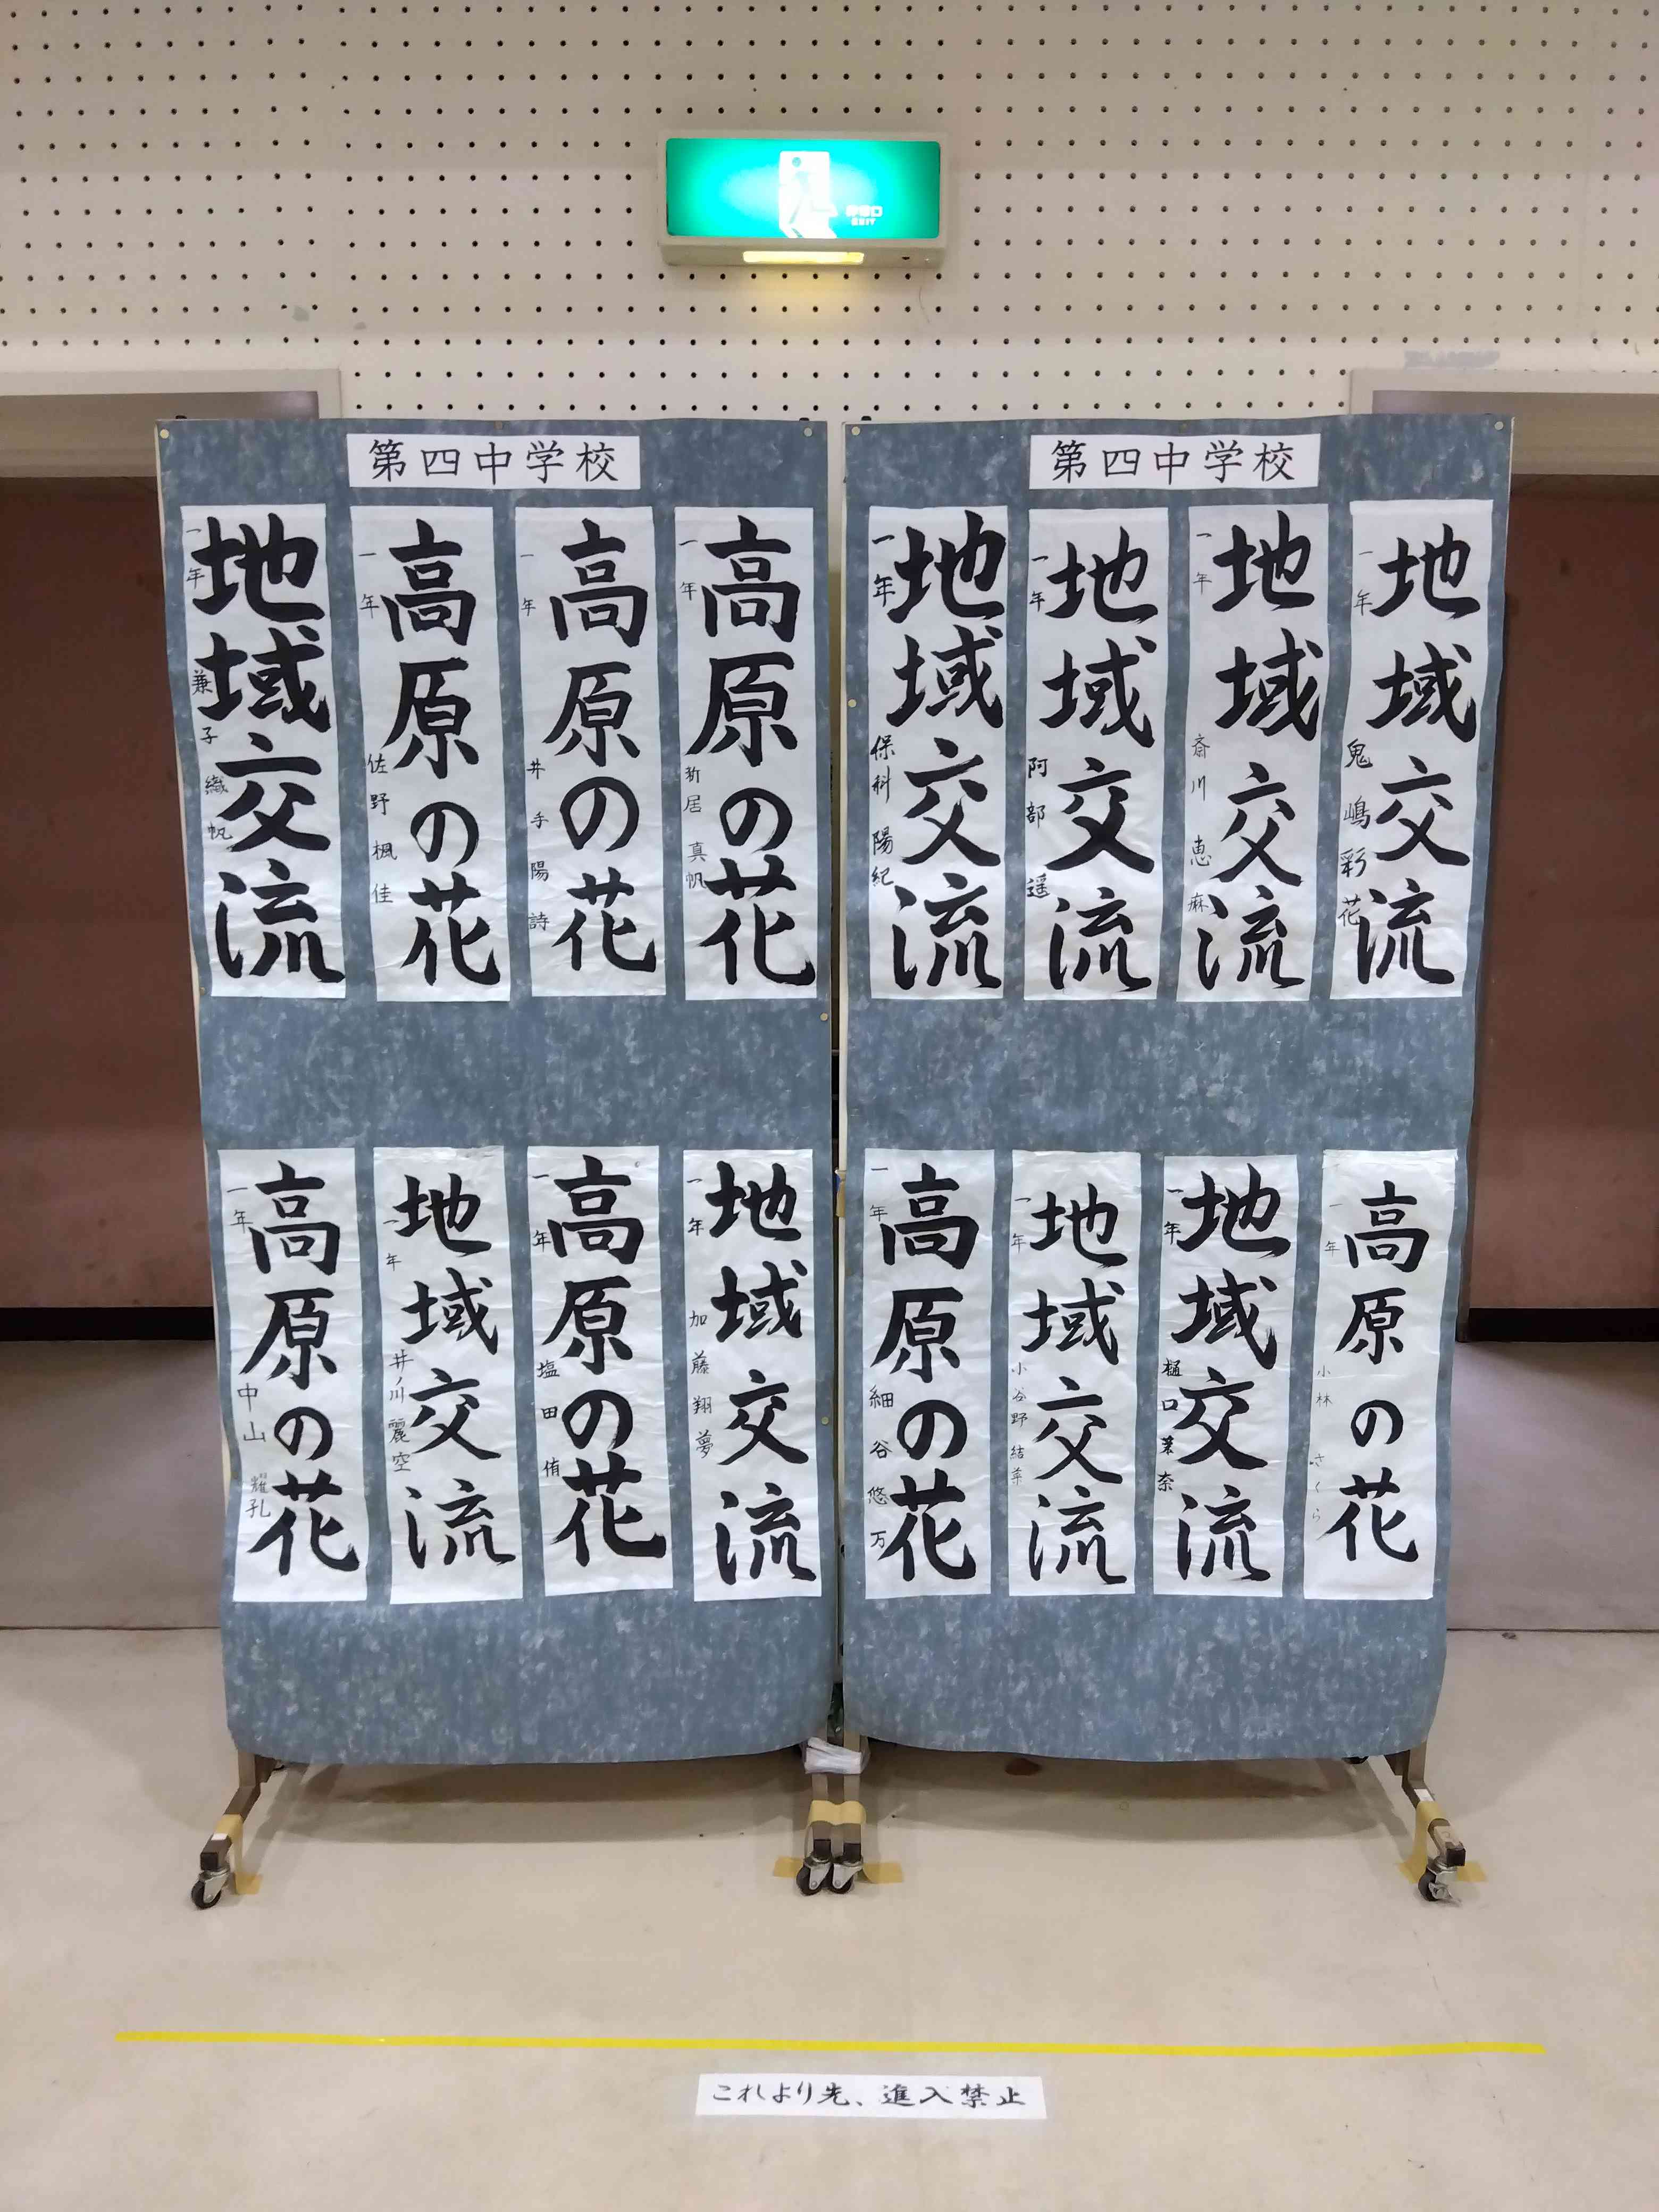 非常口
EXIT
第四中学校
地域交流
一年 兼子 織帆
高原の花
一年 佐野 楓佳
高原の花
一年 井手 陽詩
高原の花
一年 新居 真帆
高原の花
一年 中山 耀孔
地域交流
一年 井ノ川 麗空
高原の花
一年 塩田 侑
地域交流
一年 加藤 翔夢
第四中学校
地域交流
一年 保科 陽紀
地域交流
一年 阿部 遥
地域交流
一年 斎川 恵麻
地域交流
一年 鬼嶋 彩花
高原の花
一年 細谷 悠万
地域交流
一年 小谷野 結
地域交流
一年 樋口 奈
高原の花
一年 小林 さくら
これより先、進入禁止